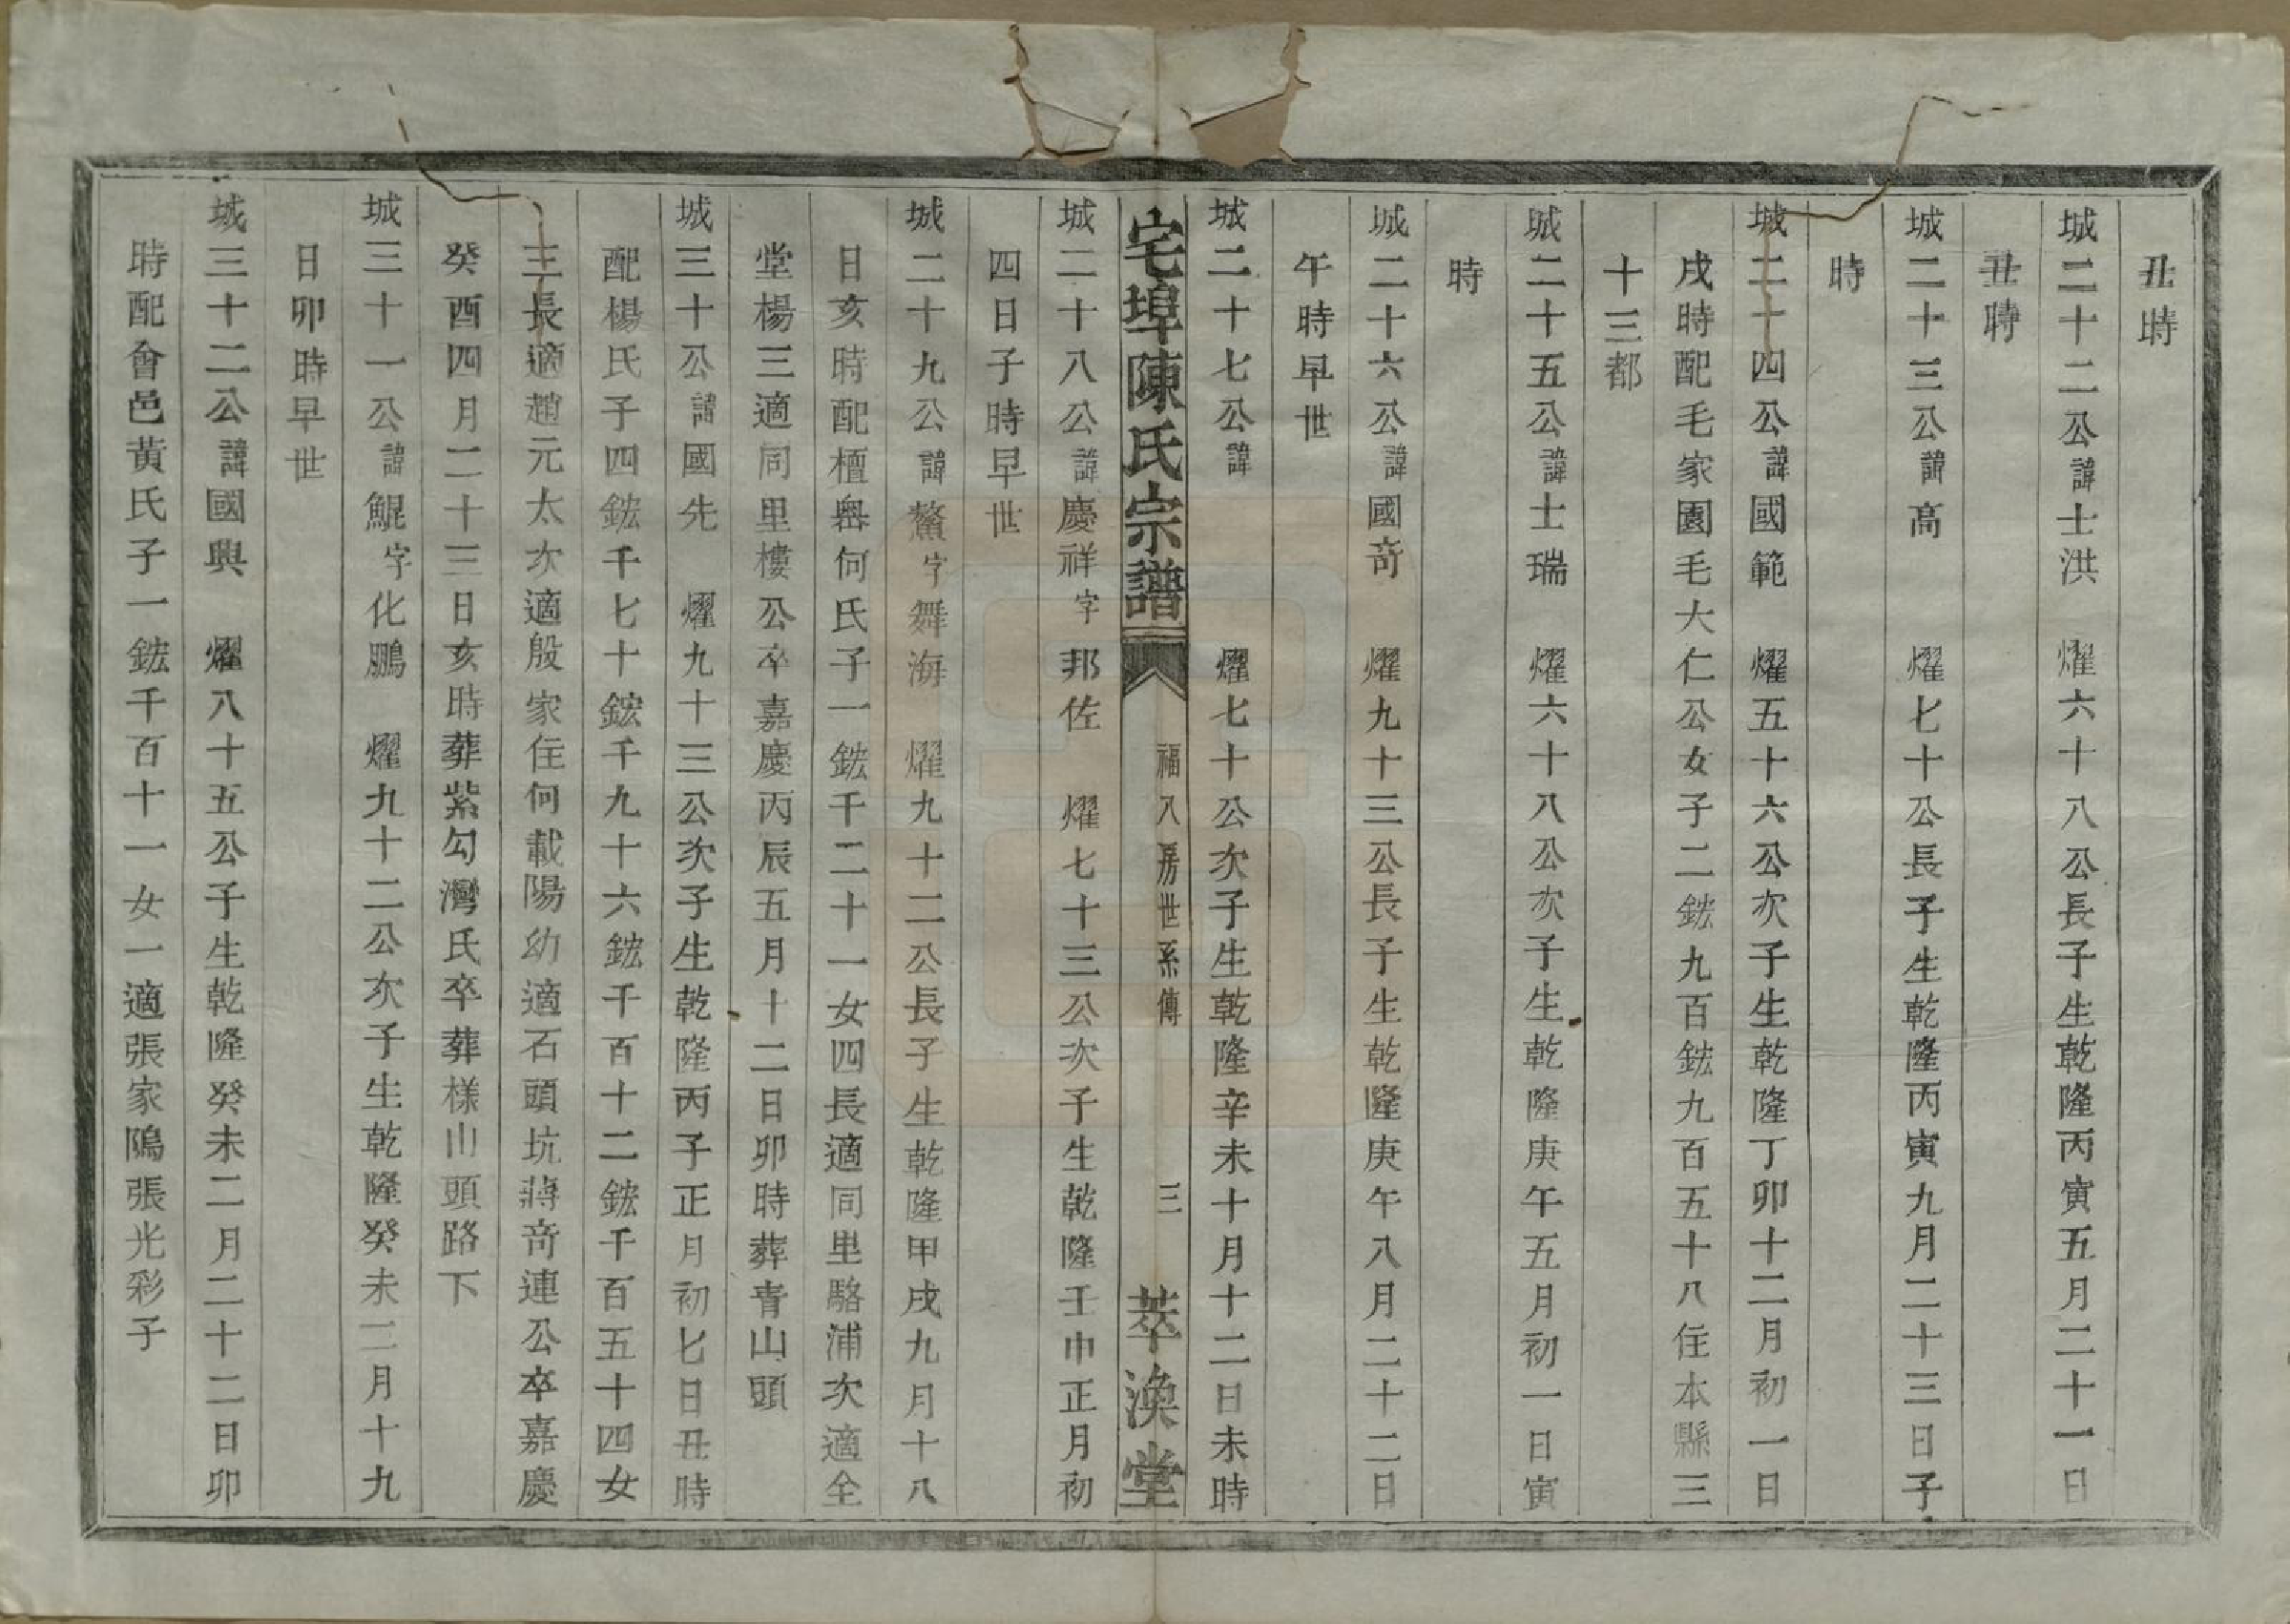 丑時
城二十二公諱士洪　燿六十八公長子生乾隆丙寅五月二十一日
丑時
城二十三公諱高　燿七十公長子生乾隆丙寅九月二十三日子
時
城二十四公諱國範　燿五十六公次子生乾隆丁卯十二月初一日
戌時配毛家園毛大仁公女子二鋐九百鋐九百五十八住本縣三
十三都
城二十五公諱士瑞　燿六十八公次子生乾隆庚午五月初一日寅
時
城二十六公諱國奇　燿九十三公長子生乾隆庚午八月二十二日
午時早世
城二十七公諱　燿七十公次子生乾隆辛未十月十二日未時
宅埠陳氏宗譜　福八房世系傳　三　萃渙堂
城二十八公諱慶祥字邦佐　燿七十三公次子生乾隆壬申正月初
四日子時早世
城二十九公諱鰲字舞海　燿九十二公長子生乾隆甲戌九月十八
日亥時配檀嶴何氏子一鋐千二十一女四長適同里駱浦次適全
堂楊三適同里樓公卒嘉慶丙辰五月十二日卯時葬青山頭
城三十公諱國先　燿九十三公次子生乾隆丙子正月初七日丑時
配楊氏子四鋐千七十鋐千九十六鋐千百十二鋐千百五十四女
三長適趙元太次適殷家住何載陽幼適石頭坑蔣奇連公卒嘉慶
癸酉四月二十三日亥時葬紫勾灣氏卒葬樣山頭路下
城三十一公諱鯤字化鵬　燿九十二公次子生乾隆癸未二月十九
日卯時早世
城三十二公諱國興　燿八十五公子生乾隆癸未二月二十二日卯
時配會邑黃氏子一鋐千百十一女一適張家隖張光彩子